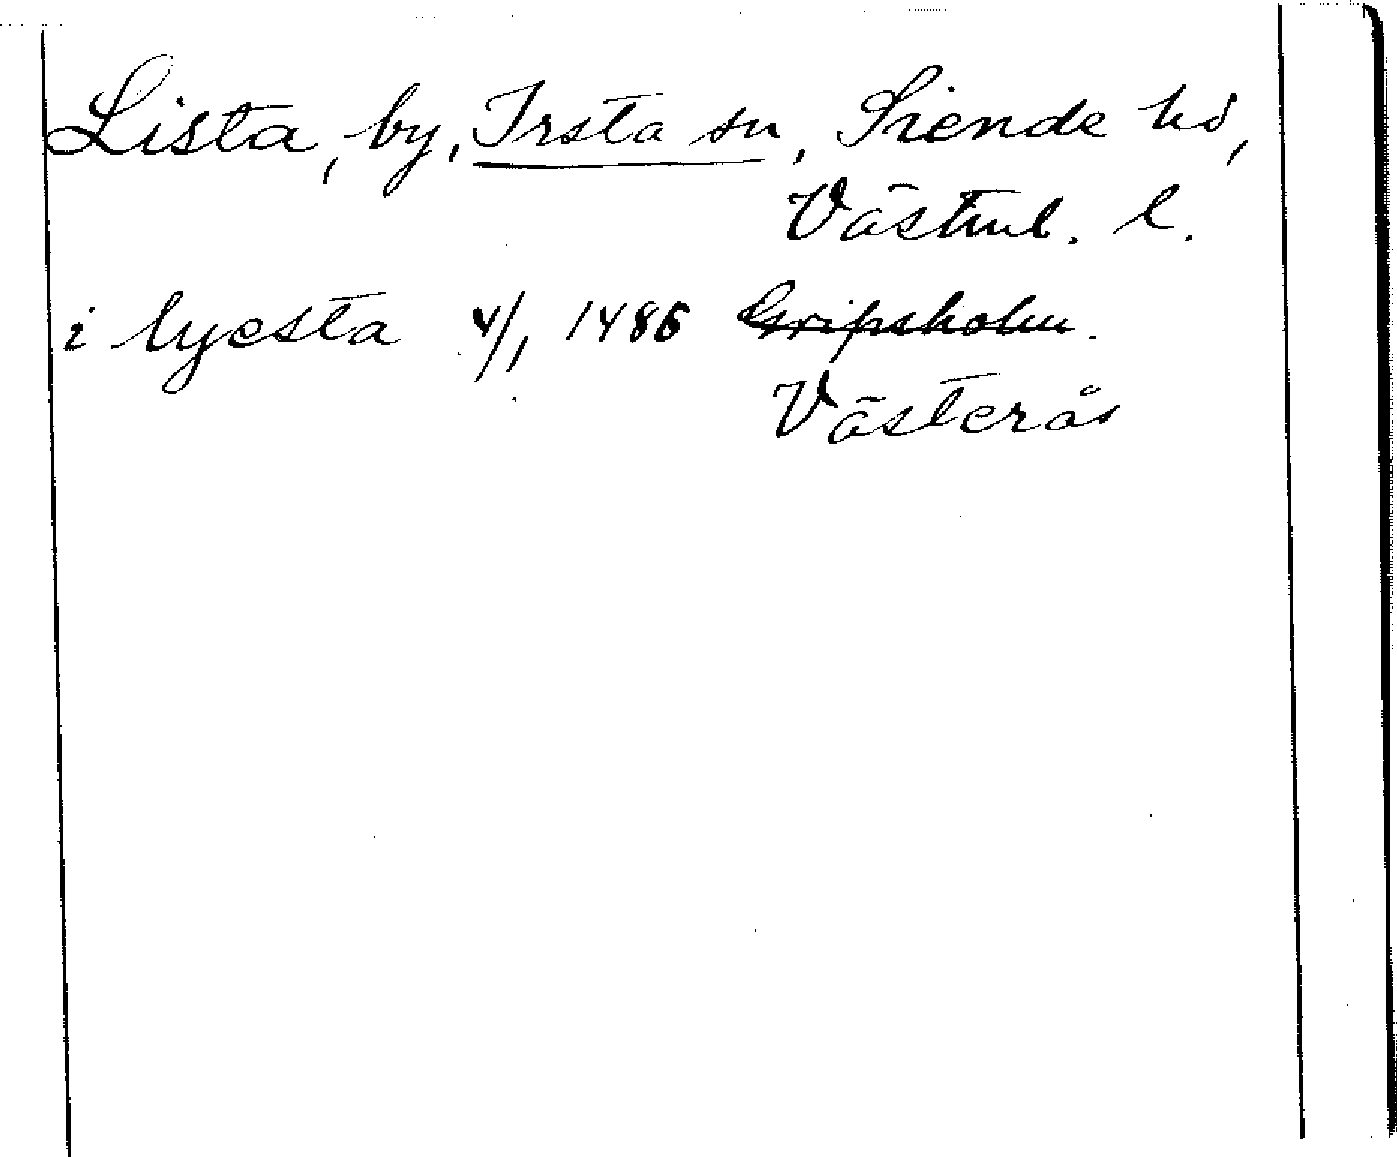 Lista, by, Irsta sn, Siende hd,
Västml. l.
i lyesta 4/1 1486 Gripsholm.
Västerås